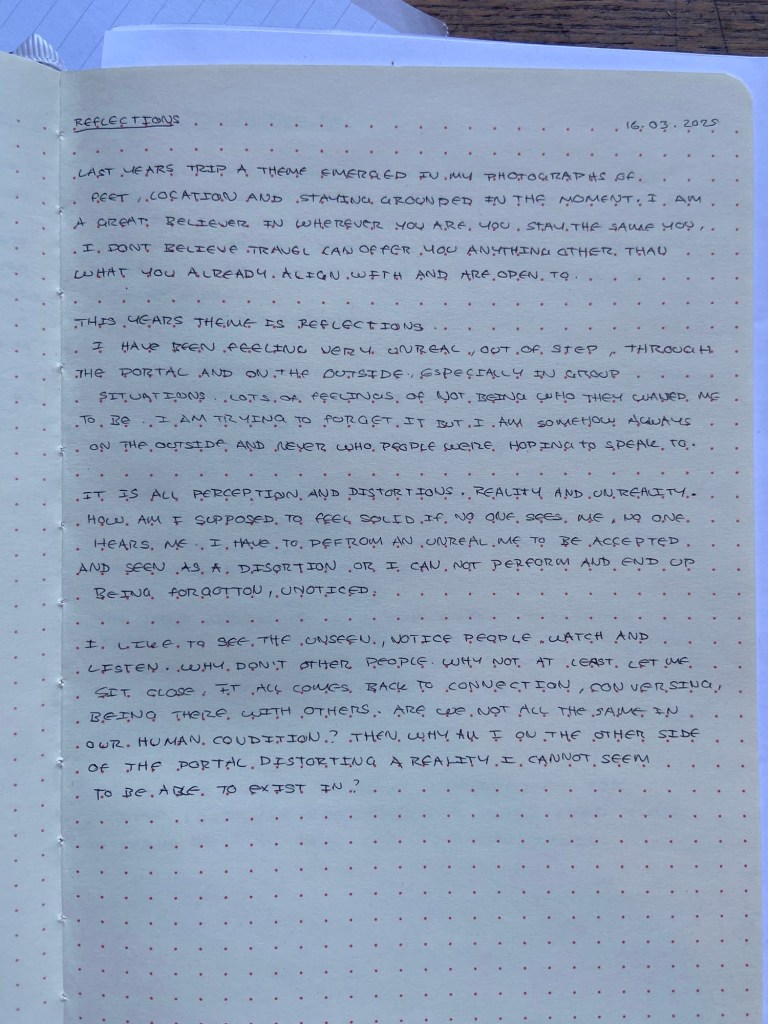 REFLECTIONS 16.03.2025
LAST YEARS TRIP A THEME EMERGED IN MY PHOTOGRAPHS OF.
FEET, LOCATION AND STAYING GROUNDED IN THE MOMENT. I AM
A GREAT BELIEVER IN WHEREVER YOU ARE YOU STAY THE SAME YOU,
I DONT BELIEVE TRAVEL CAN OFFER YOU ANYTHING OTHER THAN
WHAT YOU ALREADY ALIGN WITH AND ARE OPEN TO.
THIS YEARS THEME IS REFLECTIONS
I HAVE BEEN FEELING VERY UNREAL, OUT OF STEP, THROUGH
THE PORTAL AND ON THE OUTSIDE, ESPECIALLY IN GROUP
SITUATIONS. LOTS OF FEELINGS OF NOT BEING WHO THEY WANED ME
TO BE. I AM TRYING TO FORGET IT BUT I AM SOMEHOW ALWAYS
ON THE OUTSIDE AND NEVER WHO PEOPLE WERE HOPING TO SPEAK TO.
IT IS ALL PERCEPTION AND DISTORTIONS. REALITY AND UNREALITY.
HOW AM I SUPPOSED TO FEEL SOLID IF NO ONE SEES ME, NO ONE
HEARS ME. I HAVE TO DEFROM AN UNREAL ME TO BE ACCEPTED
AND SEEN AS A DISORTION OR I CAN NOT PERFORM AND END UP
BEING FORGOTTON, UNOTICED.
I LIKE TO SEE THE UNSEEN, NOTICE PEOPLE WATCH AND
LISTEN. WHY DON'T OTHER PEOPLE. WHY NOT AT LEAST LET ME
SIT CLOSE, IT ALL COMES BACK TO CONNECTION, CONVERSING,
BEING THERE WITH OTHERS. ARE WE NOT ALL THE SAME IN
OUR HUMAN CONDITION? THEN WHY AM I ON THE OTHER SIDE
OF THE PORTAL DISTORTING A REALITY I CANNOT SEEM
TO BE ABLE TO EXIST IN?